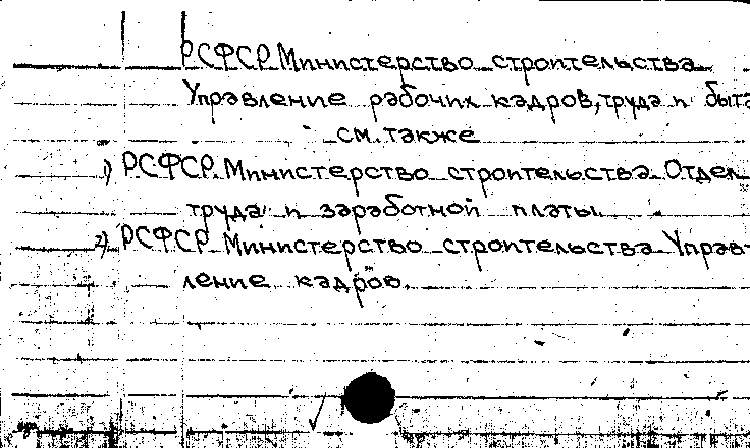 РСФСР. Министерство строительства
Управление рабочих кадров, труда и быта
см. также
1) РСФСР. Министерство строительства. Отдел
труда и заработной платы.
2) РСФСР. Министерство строительства Управ-
ление кадров.